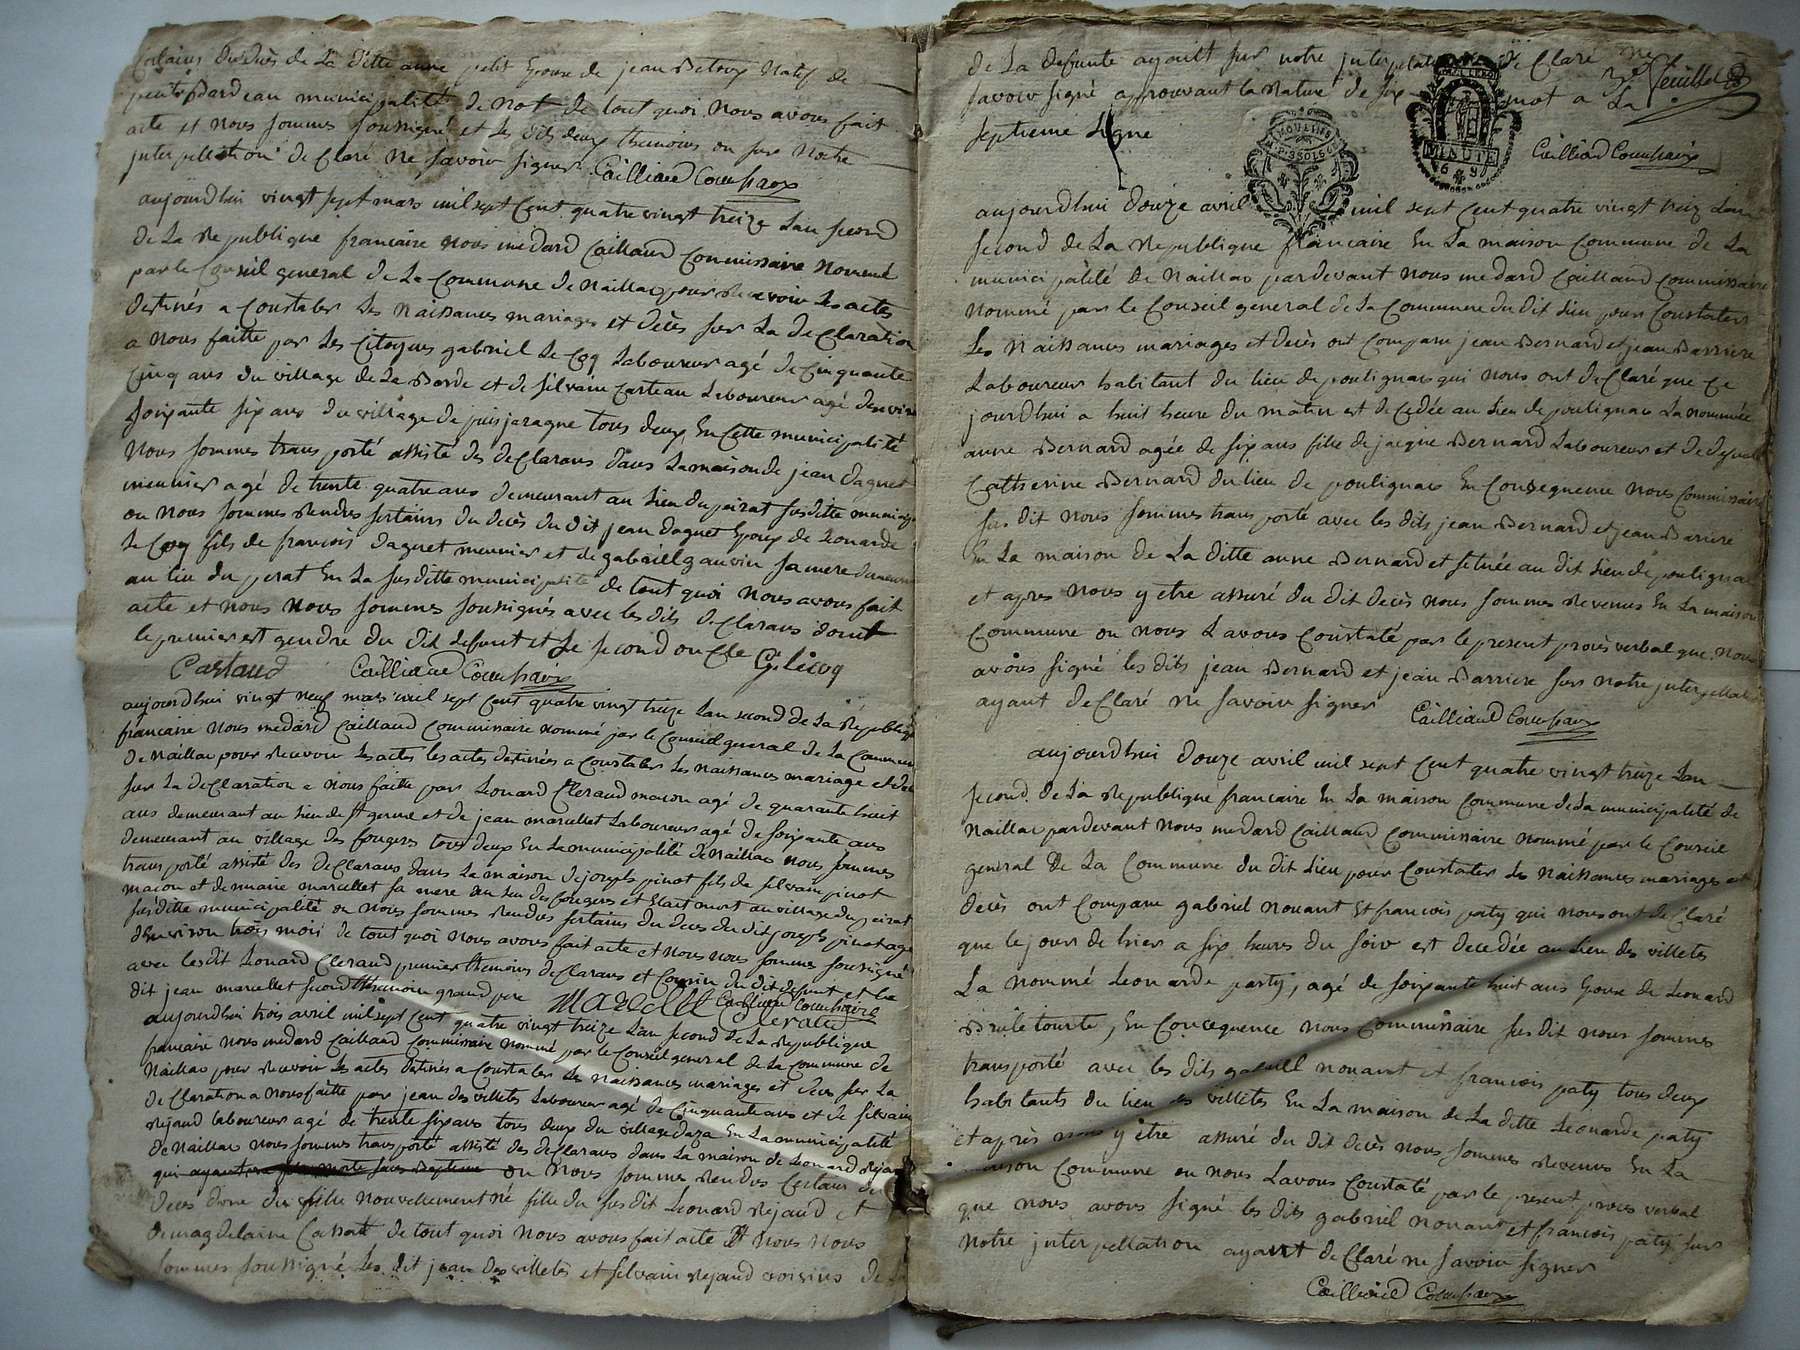 Certains du decès de La ditte anne petit Epouse de jean Betroy Natif de
petit Bardeau municipalité de Not de tout quoi Nous avons fait
acte et nous sommes soussigné et Les dits deux themoins ou sur Notre
juterpellation de Claré Ne savoir signer Cailliaud Comissaire
aujourdhui vingt sept mars mil sept Cent quatre vingt treize Lan second
de La Republique francaire Nous medard Caillaud Commissaire Nommé
par le Conseil general de La Commune de Naillac pour recevoir Les actes
destinés a Constater Les Naissances mariages et decès sur La de Claration
a nous faitte par Les Citoyens gabriel Le Coq Laboureur agé de Cinquante
Cinq ans du village de La Borde et de silvain Carteau Laboureur agé denviron
soixante six ans du village de puisjaragne tous deux En Cette municipalité
Nous sommes trans porté assisté des de Clarans dans La maison de jean daguet
meunier agé de trente quatre ans demeurant au Lieu du peirat susditte municipalité
ou nous sommes rendus sertains du decès du dit jean daguet Epoux de Leonarde
Le Coq fils de francois daguet meunier et de gabriell gauvin sa mere demeurant
au lieu du perat En La sus ditte municipalité de tout quoi Nous avons fait
acte et nous Nous sommes soussignés avec les dits de Clarans dont
le premier est gendre du dit defunt et Le second oncle G. licoq
Cartaud Cailliaud Comissaire
aujourdhui vingt neuf mars mil sept Cent quatre vingt treize Lan second de La Republique
francaise Nous medard Caillaud Commissaire nommé par le Conseil general de La Commune
de Naillac pour recevoir Les actes les actes destinées a Constater Les Naissances mariage et decès
sur La de Claration a Nous faitte par Leonard Cleraud macon agé de quarante huit
ans demeurant au Lieu de st germe et de jean marcellet Laboureur agé de soixante ans
demeurant au village des fougeres tous deux En La municipalité de Naillac nous sommes
trans porté assisté des de Clarans dans La maison de joseph pinot fils de silvain pinot
macon et de marie marcellet sa mere au Lieu des fougeres et Etait mort au village du peirat
sus ditte municipalité ou Nous sommes rendus sertains du deces du dit joseph pinot agé
denviron trois mois de tout quoi nous avons fait acte et Nous nous sommes soussigné
avec les dit Leonard Cleraud premier themoins de Clarans et Cousin du dit defunt et Le
dit jean marcellet second themoin grand pere Marcellet Cailliaud Comissaire
Cleraud
aujourdhui trois avril mil sept Cent quatre vingt treize Lan second de La republique
francaise nous medard Caillaud Commissaire nommé par le Conseil general de La Commune de
Naillac pour recevoir Les actes destinés a Constater Les naissances mariages et deces sur La
de Claration a nous faitte par jean des villetes Laboureur agé de Cinquante ans et de silvain
rejaud laboureur agé de trente six ans tous deux du village daza En La municipalité
de Naillac Nous sommes transporté assisté des de Clarans dans La maison de Leonard rejaud
qui ou Nous somme rendus Certains du
deces dune du fille nouvellement né fille du susdit Leonard rejaud et
de magdelaine Cassat de tout quoi nous avons fait acte Et nous nous
sommes soussigné Les dit jean des villetes et silvain rejaud voisins de La
de La defunte ayant sur notre juterpelation de Claré ne
savoir signé approuvant la rature de six mot a La
septieme Ligne
3e feuillet
MOULINS
MINUTE
Cailliaud Comissaire
aujourdhui douze avril mil sept Cent quatre vingt treiz Lan
second de La republique francaise En La maison Commune de La
municipalité de Naillac pardevant nous medard Caillaud Commissaire
nommé par le Conseil general de La Commune du dit Lieu pour Constater
Les Naissances mariages et decès ont Comparu jean Bernard et jean Barriere
Laboureur habitant du lieu de poulignac qui nous ont de Claré que Ce
jourdhui a huit heure du matin est decedée au Lieu de poulignac La nommée
anne Bernard agée de six ans fille de jacque Bernard Laboureur et de defunte
Catherine Bernard du lieu de poulignac En Consequence nous Commissaire
sus dit nous sommes trans porté avec les dits jean Bernard et jean Bariere
En La maison de La ditte anne Bernard et setuée au dit Lieu de poulignac
et apres nous y être assuré du dit decès nous sommes revenus En La maison
Commune ou nous Lavons Constaté par le present procès verbal que nous
avons signé les dits jean Bernard et jean Barriere sur notre juterpellation
ayant de Claré ne savoir signer Cailliaud Comissaire
aujourdhui douze avril mil sept Cent quatre vingt treize Lan
second de La republique francaise En La maison Commune de La municipalité de
Naillac pardevant nous medard Caillaud Commissaire nommé par le Conseil
general de La Commune du dit Lieu pour Constater Les Naissances mariages et
decès ont Comparu gabriel nouant Et francois paty qui nous ont de Claré
que le jour de hier a six heures du soir est decedée au Lieu des villetes
La nommé Leonarde paty, agé de soixante huit ans Epouse de Leonard
Bruletourte, En Consequence nous Commissaire sus dit nous sommes
transporté avec les dits gabriell nouant et francois paty tous deux
habitants du lieu des villetes En La maison de La ditte Leonarde paty
et après nous y être assuré du dit decès nous sommes revenus En La
maison Commune ou nous Lavons Constaté par le present proces verbal
que nous avons signé les dits gabriel nouant et francois paty sur
notre juterpellation ayant de Claré ne savoir signer
Cailliaud Comissaire